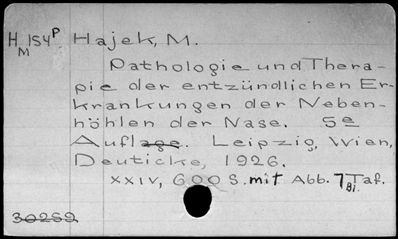 H 154P Hajek, M.
M
Pathologie und Thera-
pie der entzündlichen Er-
krankungen der Neben-
höhlen der Nase. 5e
Auflage. Leipzig, Wien,
Deuticke, 1926.
XXIV, 600 S. mit Abb. 7 Taf.
Bi.
30269